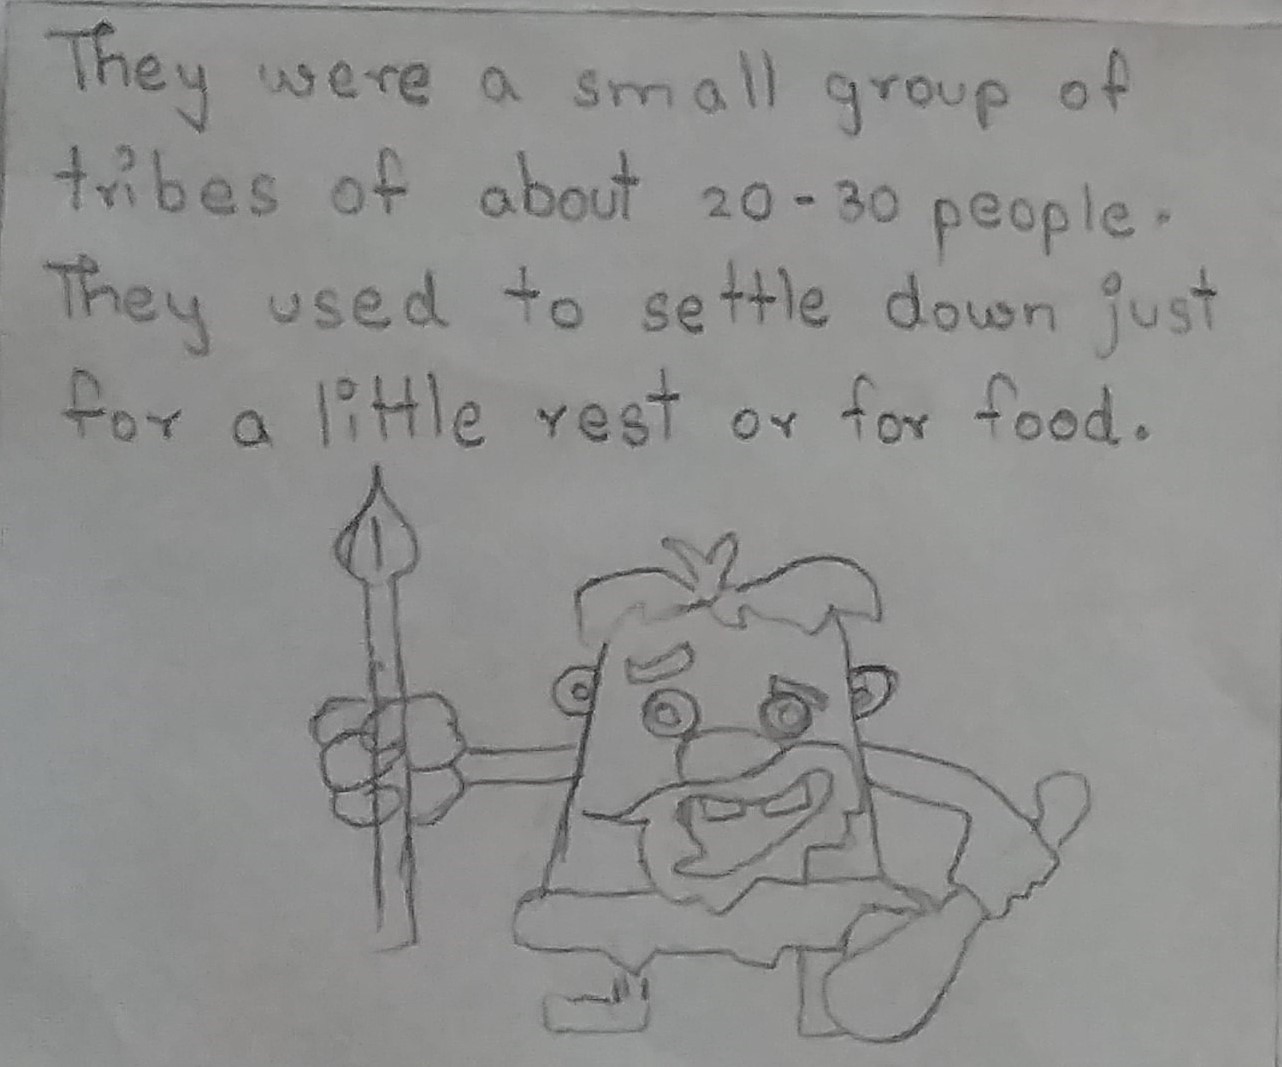 They were a small group of
tribes of about 20-30 people.
They used to settle down just
for a little rest or for food.